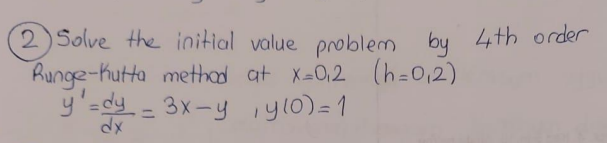 2) Solve the initial value problem by 4th order
Runge-Kutta method at x=0,2 (h=0,2)
y' = dy/dx = 3x-y , y(0)=1